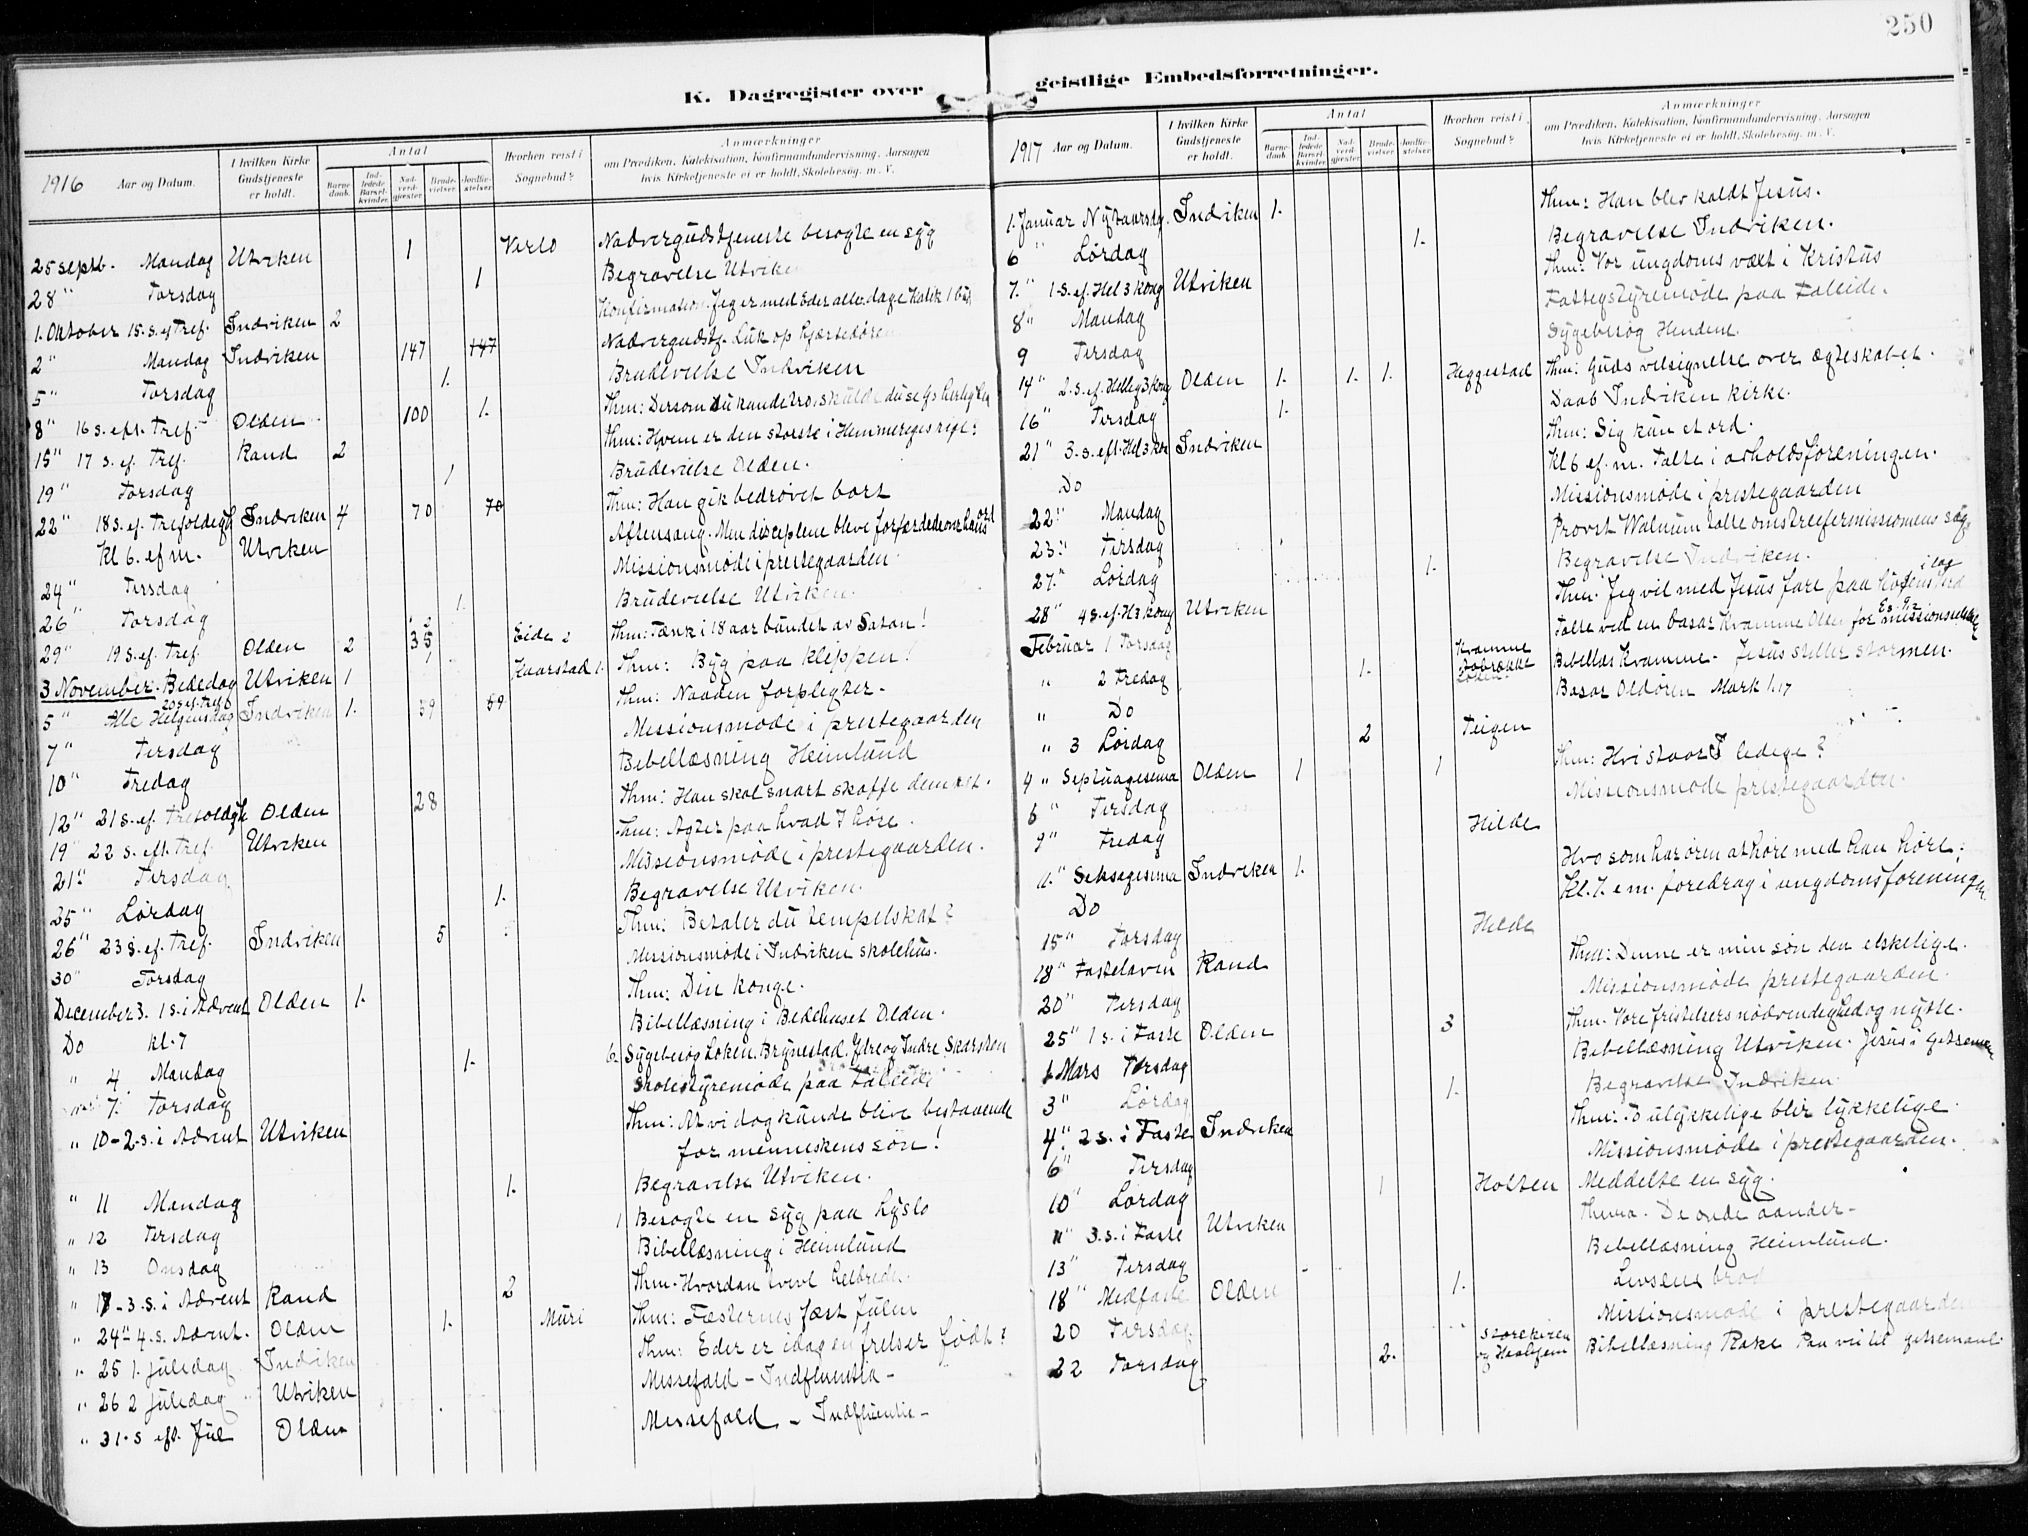 250
K. Dagregister over geistlige Embedsforretninger.
1916 Aar og Datum. I hvilken Kirke Gudstjeneste er holdt. Antal Barnedaab. Indledede Barselkvinder. Nadverdgjæster. Brudevielser. Jordfæstelser. Hvorhen reist i Sognebud? Anmærkninger om Prædiken, Katekisation, Konfirmandundervisning, Aarsagen hvis Kirketjeneste ei er holdt, Skolebesøg. m. V.
25 septb. Mandag Utviken 1 Nadvergudstjeneste besøgte en syg
28 " Torsdag 1 Begravelse Utviken
1. Oktober 15. s. ef Tref. Indviken 2 Konfirmation. Jeg er med Eder alle dage
2 " Mandag Indviken 147 147 Nadvergudstj. Luk op hjertedøren
5 " Torsdag 1. Brudevielse Indviken
8 " 16 s. eft. Tref. Olden 100 1. Thm: Dersom du kunde tro, skulde du se
15 " 17 s. ef. Tref. Rand 2 Thm: Hvem er den største i Himmeriges rige?
19 " Torsdag 1 Brudevielse Olden.
22 " 18 s. ef. Trefoldigh Indviken 4 70 70 Thm: Han gik bedrøvet bort
Kl 6. ef m. Utviken Aftensang. Men disciplene bleve forfærdede over hans ord
24 " Tirsdag Missionsmøde i prestegaarden.
26 " Torsdag 1. Brudevielse Utviken.
29 " 19 s. ef. Tref. Olden 2 35 Eide 2 Thm: Tænk i 18 aar bundet av Satan!
3 November. Bededag Utviken 1 Kaarstad 1. Thm: Byg paa kleppen!
5 " Alle Helgensdag 20 s ef. Tref. Indviken 1. 59 59 Thm: Naaden forpligter.
7 " Tirsdag Missionsmøde i prestegaarden
10 " Fredag Bibellæsning Heimlund
12 " 21 s. ef. Trefoldigh Olden 28 Thm: Han skal snart skaffe dem ret.
19 " 22 s. eft. Tref. Utviken Thm: Agter paa hvad I høre.
21 " Tirsdag Missionsmøde i prestegaarden.
25 " Lørdag 1. Begravelse Utviken.
26 " 23 s. ef. Tref. Indviken 5 Thm: Betaler du tempelskat?
30 " Torsdag Missionsmøde i Indviken skolehus.
December 3. 1 s. i Advent Olden 1. Thm: Din konge.
Do kl. 7 Bibellæsning i Bedehuset Olden.
" 4 Mandag 1. 6. Sygebesøg Loken. Brynestad. Ytre og Indre Skarsten
" 7. Torsdag Skolestyremøde paa Faleide
" 10 - 2. s. i Advent Utviken Thm: At vi dog kunde blive bestaaende
for menneskens søn!
" 11 Mandag 1. Begravelse Utviken.
" 12 Tirsdag 1 Besøgte en syg paa Lyslo
" 13 Onsdag Bibellæsning i Heimlund
" 17 - 3. s. i Advent Rand 2 Thm: Hvordan tvivl helbredes
" 24 - 4. s. Advent. Olden 1. Muri Thm: Festernes fest Julen
" 25 1. juledag Indviken Thm: Eder er idag en frelser født!
" 26 2 juledag Utviken Messefald - Indfluentia -
" 31 s. eft. Jul Olden Messefald - Indfluentia -
1917 Aar og Datum. I hvilken Kirke Gudstjeneste er holdt. Antal Barnedaab. Indledede Barselkvinder. Nadverdgjester. Brudevielser. Jordfæstelser. Hvorhen reist i Sognebud? Anmærkninger om Prædiken, Katekisation, Konfirmandundervisning, Aarsagen hvis Kirketjeneste ei er holdt, Skolebesøg. m. V.
1. Januar Nytaarsdg. Indviken 1. Thm: Han blev kaldt Jesus.
6 " Lørdag 1. Begravelse Indviken.
7. " 1 s. ef. Hel 3 kong Utviken Thm: Vor ungdoms væxt i Kristus
8 " Mandag Fattigstyremøde paa Faleide.
9 Tirsdag Sygebesøg Hendene.
14 " 2 s. ef. Hellig 3 kong Olden 1. 1. 1. Heggestad Thm: Guds velsignelse over egteskabet.
16 " Tirsdag 1. Daab Indviken kirke.
21 " 3. s. eft. Hel 3 kon Indviken Thm: Sig kun et ord.
Do Kl 6 ef. m. Talte i avholdsforeningen.
22 " Mandag Missionsmøde i prestegaarden
23 " Tirsdag Provst Walnum talte om streefermissionens sag.
27. " Lørdag 1. Begravelse Indviken.
28 " 4 s. ef. H 3 kong Utviken Thm: Jeg vil med Jesus fare paa livsens færd
Februar 1 Torsdag Talte ved en basar Kvamme Olden for missionsselsk.
" 2 Fredag 1. Kvamme Bibellæs Kvamme - Jesus stiller stormen.
" Do Basar Oldøren Mark 1.17
" 3 Lørdag 2 Teigen
4 " Septuagesima Olden 1 1 Thm: Hvi staar I ledige?
6 " Tirsdag Missionsmøde prestegaarden
9 " Fredag Hilde
11. " Seksagesima Indviken 1. Hvo som har øren at høre med han høre;
Do Kl. 7. e m. foredrag i ungdomsforeningen
15 " Torsdag Hilde
18 " Fastelaven Rand Thm: Denne er min søn den elskelige.
20 " Tirsdag Missionsmøde prestegaarden.
25 " 1 s. i Faste Olden 3 Thm. Vore fristelsers nødvendighed og nytte.
1 Mars Torsdag Bibellæsning Utviken. Jesus i Getsemane
3 " Lørdag 1. Begravelse Indviken
4. " 2 s. i Faste Indviken Thm: To ulykkelige blir lykkelige.
6 " Tirsdag Missionsmøde i prestegaarden.
10 " Lørdag 1 Holten Meddelte en syg.
11 " 3. s. i Faste Utviken Thema. De onde aander -
13 " Tirsdag Bibellæsning Heimlund.
18 " Midfaste Olden 1. Livsens brød
20 Tirsdag Missionsmøde i prestegaarden
22 Torsdag 2. Bibellæsning Rake